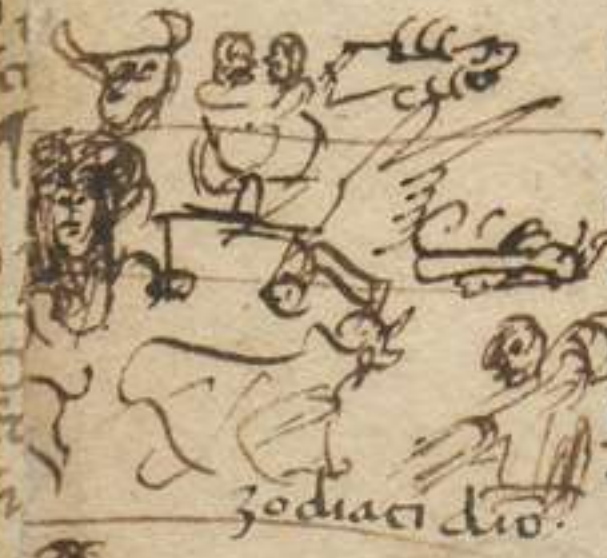 zodiaci dio.